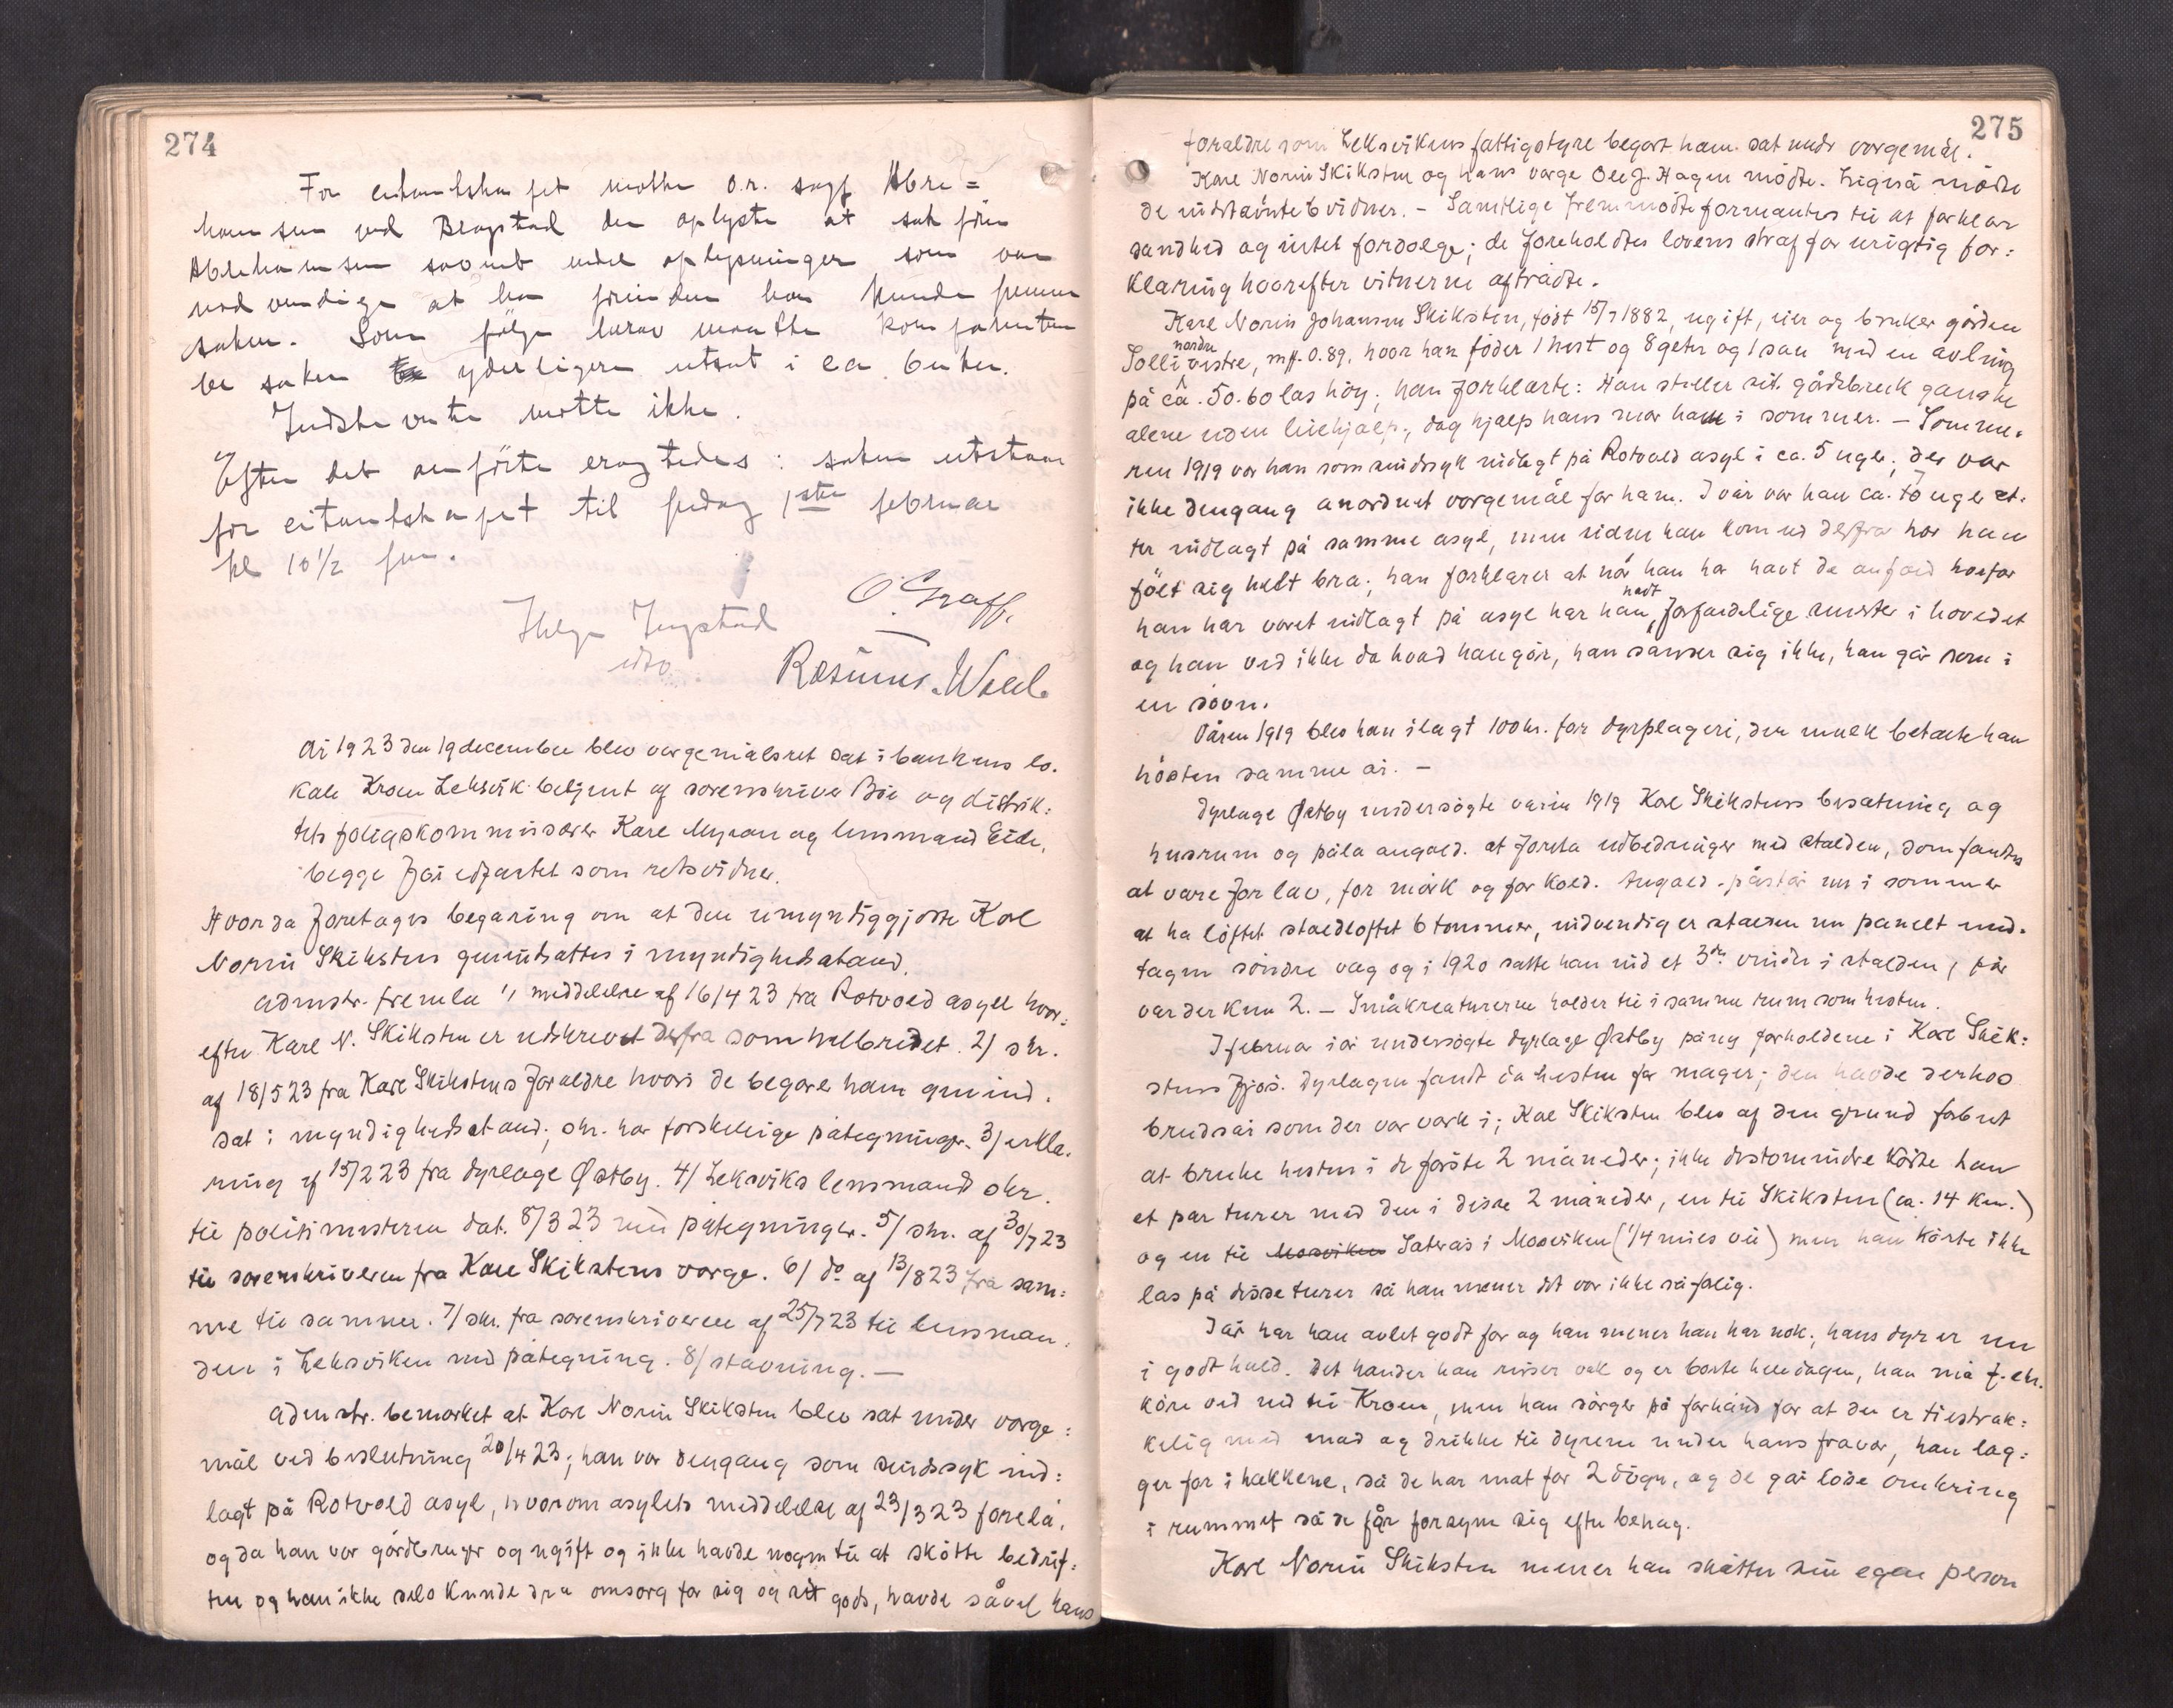 274
For citantskapet møtte o.r. sagf Abra=
hamsen ved Brogstad der oplyste at sakfører
Abrahamsen savnet endel oplysninger som var
nødvendige at ha forinden han kunde fremme
saken. Som følge herav maatte komparenten
be saken yderligere utsat i ca. 6 uker.
Indstevnte møtte ikke.
Efter det anførte eragtedes: saken utstaar
for citantskapet til fredag 1ste februar
kl 10½ fm.
O. Graff.
Helge Ingstad
edsv.
Rasmus Wold
År 1923 den 19 december blev vergemålsret sat i bankens lo-
kale Kroen Leksvik betjent af sorenskriver Bie og distrik-
tets foligskommissærer Karl Myran og lensmand Eide,
begge før edfæstet som retsvidner.
Hvorda foretages begæring om at den umyndiggjorte Karl
Norin Skiksten gjenindsættes i myndighedsstand.
Admstr. fremla 1/ meddelelse af 16/4 23 fra Rotvold asyl hvor-
efter Karl N. Skiksten er udskrevet derfra som helbredet. 2/ skr.
af 18/5 23 fra Karl Skikstens forældre hvori de begærer ham gjenind-
sat i myndighedsstand; skr. har forskellige påtegninger. 3/ erklæ-
ring af 15/2 23 fra dyrlæge Østby. 4/ Leksviks lensmands skr.
til politimesteren dat. 8/3 23 med påtegninger. 5/ skr. af 30/7 23
til sorenskriveren fra Karl Skikstens verge. 6/ do af 13/8 23 fra sam-
me til samme. 7/ skr. fra sorenskriveren af 25/7 23 til lensman-
den i Leksviken med påtegning. 8/ stævning. —
Admstr. bemærket at Karl Norin Skiksten blev sat under verge-
mål ved beslutning 20/4 23; han var dengang som sindssyk ind-
lagt på Rotvold asyl, hvorom asylets meddelelse af 23/3 23 forelå,
og da han var gårdbruger og ugift og ikke havde nogen til at skötte bedrif-
ten og han ikke selv kunde dra omsorg for sig og sit gods, havde såvel hans
275
forældre som Leksvikens fattigstyre begært ham sat under vergemål.
Karl Norin Skiksten og hans verge Ole J. Hagen mödte. Ligeså mödte
de indstævnte 6 vidner. – Samtlige fremmödte formantes til at forklare
sandhed og intet fordølge; de foreholdtes lovens straf for urigtig for-
klaring hvorefter vitnerne aftrådte.
Karl Norin Johansen Skiksten, født 15/7 1882, ugift, eier og bruker gården
Solli nordre vestre, m⁄. 0.89, hvor han föder 1 hest og 8 geter og 1 sau med en avling
på ca. 50-60 las höy; han forklarte: Han steller sit gårdsbruk ganske
alene uden leiehjælp, dog hjalp hans mor ham i sommer. – Somme-
ren 1919 var han som sindssyk indlagt på Rotvold asyl i ca. 5 uger; der var
ikke dengang anordnet vergemål for ham. I vår var han ca. 10 uger at-
ter indlagt på samme asyl, men siden han kom ud derfra har han
fölt sig helt bra; han forklarer at når han har havt de anfald hvorfor
han har været indlagt på asyl har han hadt forfærdelige smerter i hovedet
og han ved ikke da hvad han gör, han sanser sig ikke, han går som i
en sövn.
Våren 1919 blev han ilagt 100 kr. for dyrplageri, den mulk betalte han
hösten samme år. –
Dyrlæge Østby undersögte våren 1919 Karl Skikstens besætning og
husrum og påla angjeld. at foreta udbedringer med stalden, som fandtes
at være for lav, for mörk og for kold. Angjeld. påstår nu i sommer
at ha löftet staldloftet 6 tommer, indvendig er stalden nu panelt und-
tagen söndre væg og i 1920 satte han ind et 3die vindu i stalden, för
var der kun 2. – Småkreaturerne holder til i samme rum som hesten.
I februar i år undersögte dyrlæge Østby påny forholdene i Karl Skik-
stens fjös. Dyrlægen fandt da hesten for mager; den havde derhos
brudsår som der var værk i; Karl Skiksten blev af den grund forbut
at bruke hesten i de förste 2 måneder; ikke destomindre körte han
et par turer med den i disse 2 måneder, en til Skiksten (ca. 14 km.)
og en til Mosviken Saterås i Mosviken (1/4 mils vei) men han körte ikke
las på disse turer så han mener det var ikke så farlig.
I år har han avlet godt for og han mener han har nok; hans dyr er nu
i godt huld. Det hænder han reiser væk og er borte hele dagen, han må f. eks.
köre ved ned til Kroen, men han sörger på forhånd for at der er tilstræk-
kelig med mad og drikke til dyrene under hans fravær, han læg-
ger for i hækkene, så de har mat for 2 dögn, og de går löse omkring
i rummet så de får forsyne sig efter behag.
Karl Norin Skiksten mener han skötter sin egen person